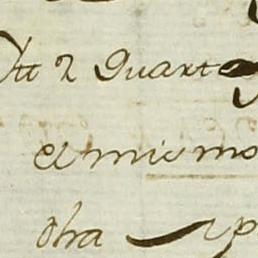 Itt 2 Quart
el mismo
otra p